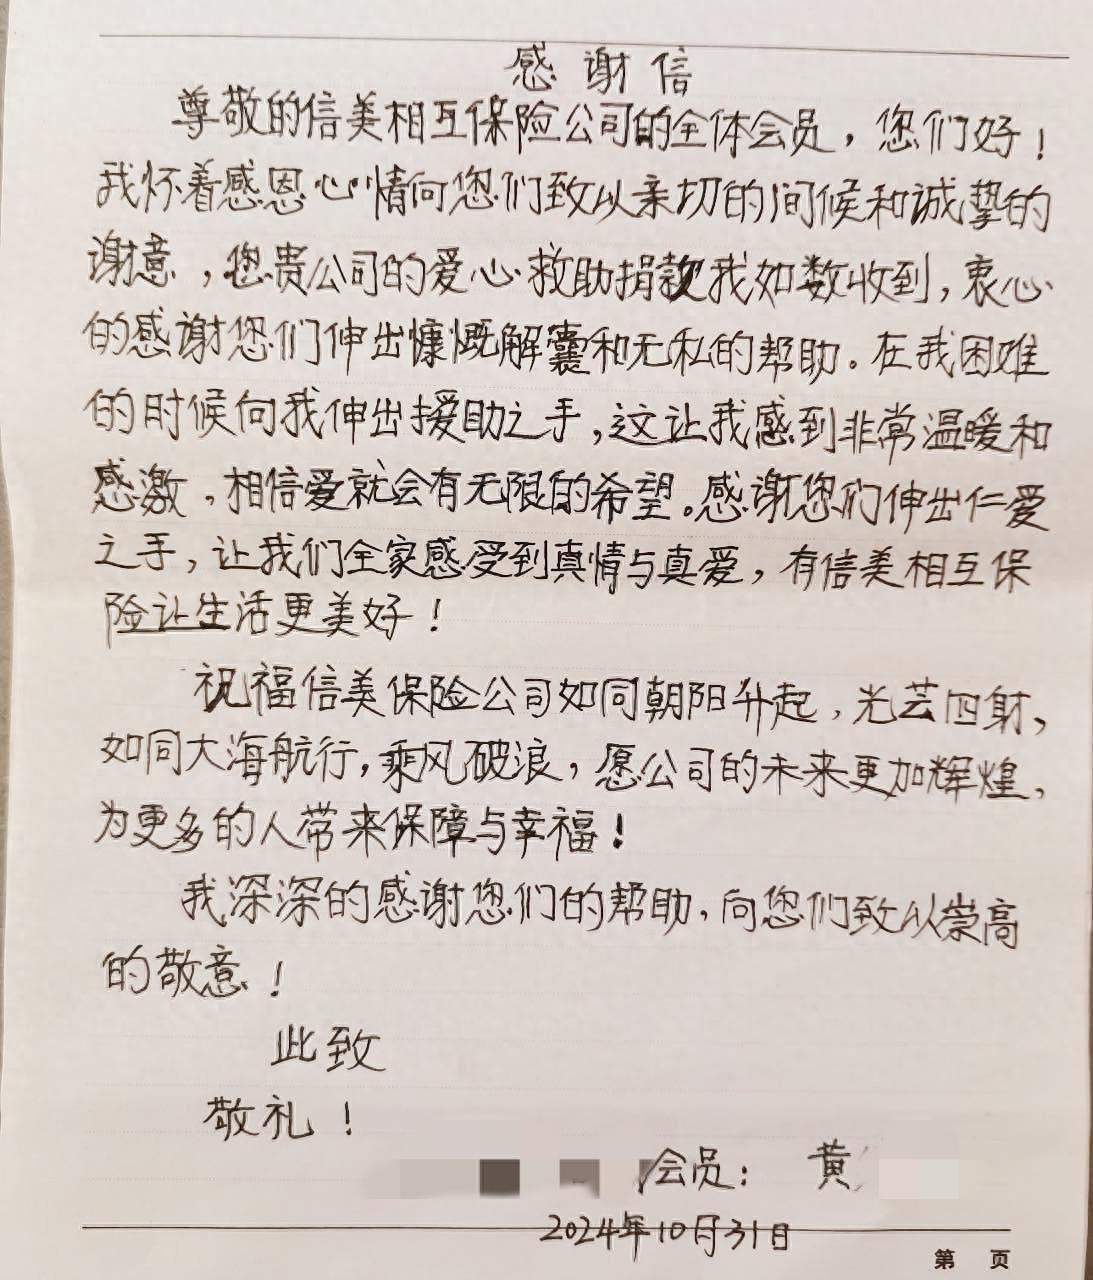 感谢信
尊敬的信美相互保险公司的全体会员，您们好！
我怀着感恩心情向您们致以亲切的问候和诚挚的
谢意，您贵公司的爱心救助捐款我如数收到，衷心
的感谢您们伸出慷慨解囊和无私的帮助。在我困难
的时候向我伸出援助之手，这让我感到非常温暖和
感激，相信爱就会有无限的希望。感谢您们伸出仁爱
之手，让我们全家感受到真情与真爱，有信美相互保
险让生活更美好！
祝福信美保险公司如同朝阳升起，光芸四射，
如同大海航行，乘风破浪，愿公司的未来更加辉煌，
为更多的人带来保障与幸福！
我深深的感谢您们的帮助，向您们致以崇高
的敬意！
此致
敬礼！
会员：黄
2024年10月31日
第 页